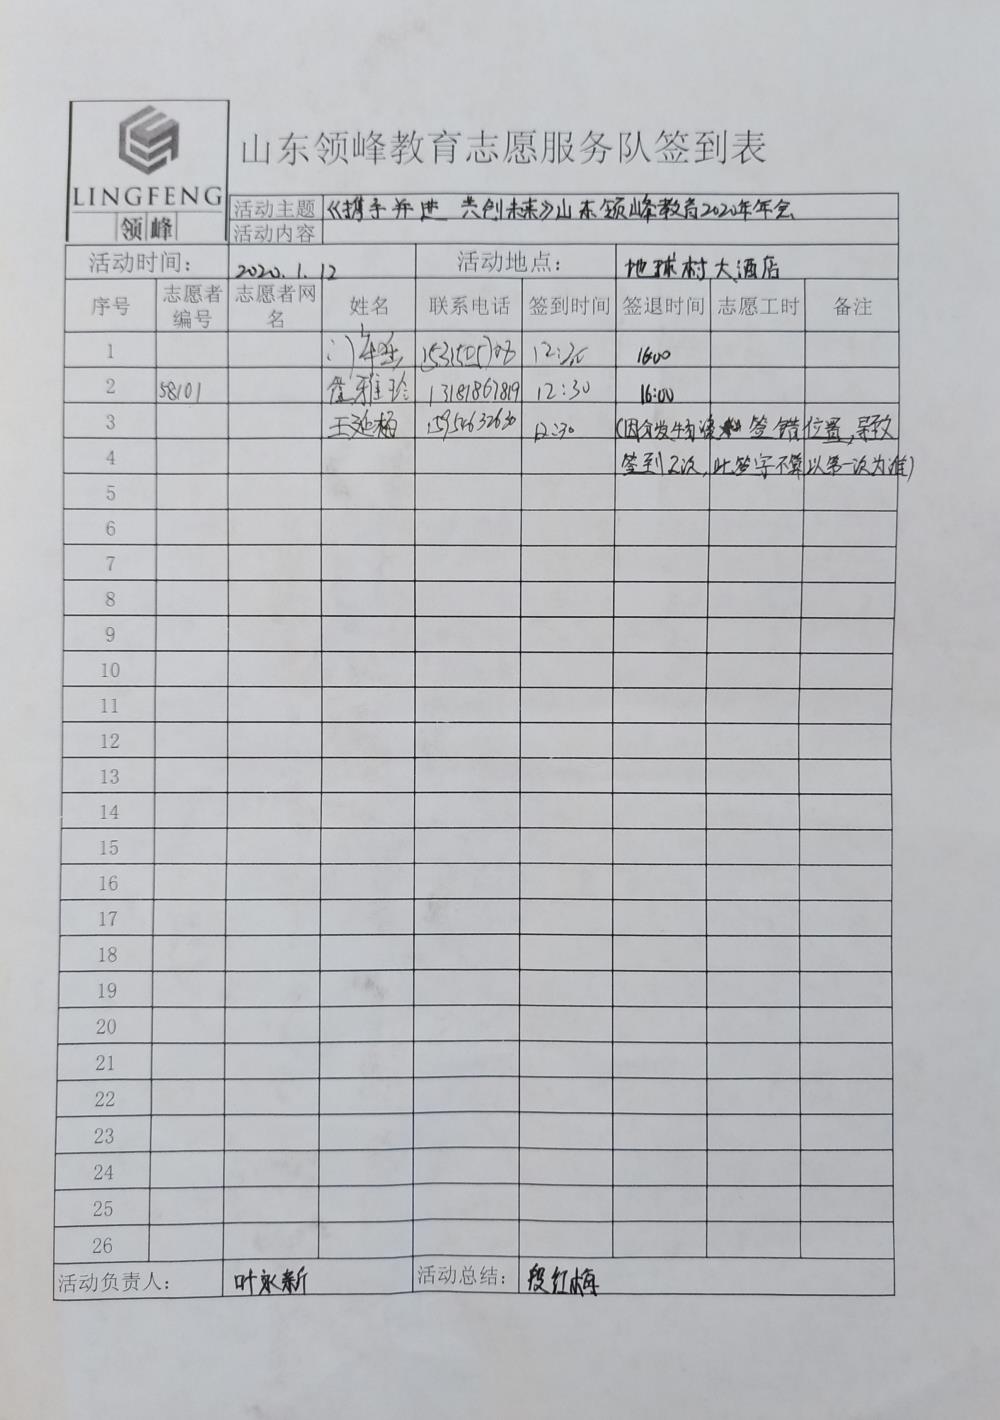 LINGFENG
领峰
山东领峰教育志愿服务队签到表
活动主题 《携手并进 共创未来》山东领峰教育2020年年会
活动内容
活动时间: 2020.1.12 活动地点: 地球村大酒店
序号 志愿者编号 志愿者网名 姓名 联系电话 签到时间 签退时间 志愿工时 备注
1 16:00
2 58101 雅玲 13181867819 12:30 16:00
3 王延梅 15954632630 12:30 签错位置,导致
4 签到2次,此签字不算以第一次为准)
5
6
7
8
9
10
11
12
13
14
15
16
17
18
19
20
21
22
23
24
25
26
活动负责人: 叶永新 活动总结: 段红梅